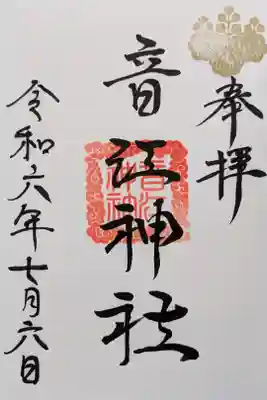 奉拝
音江神社
令和六年七月六日